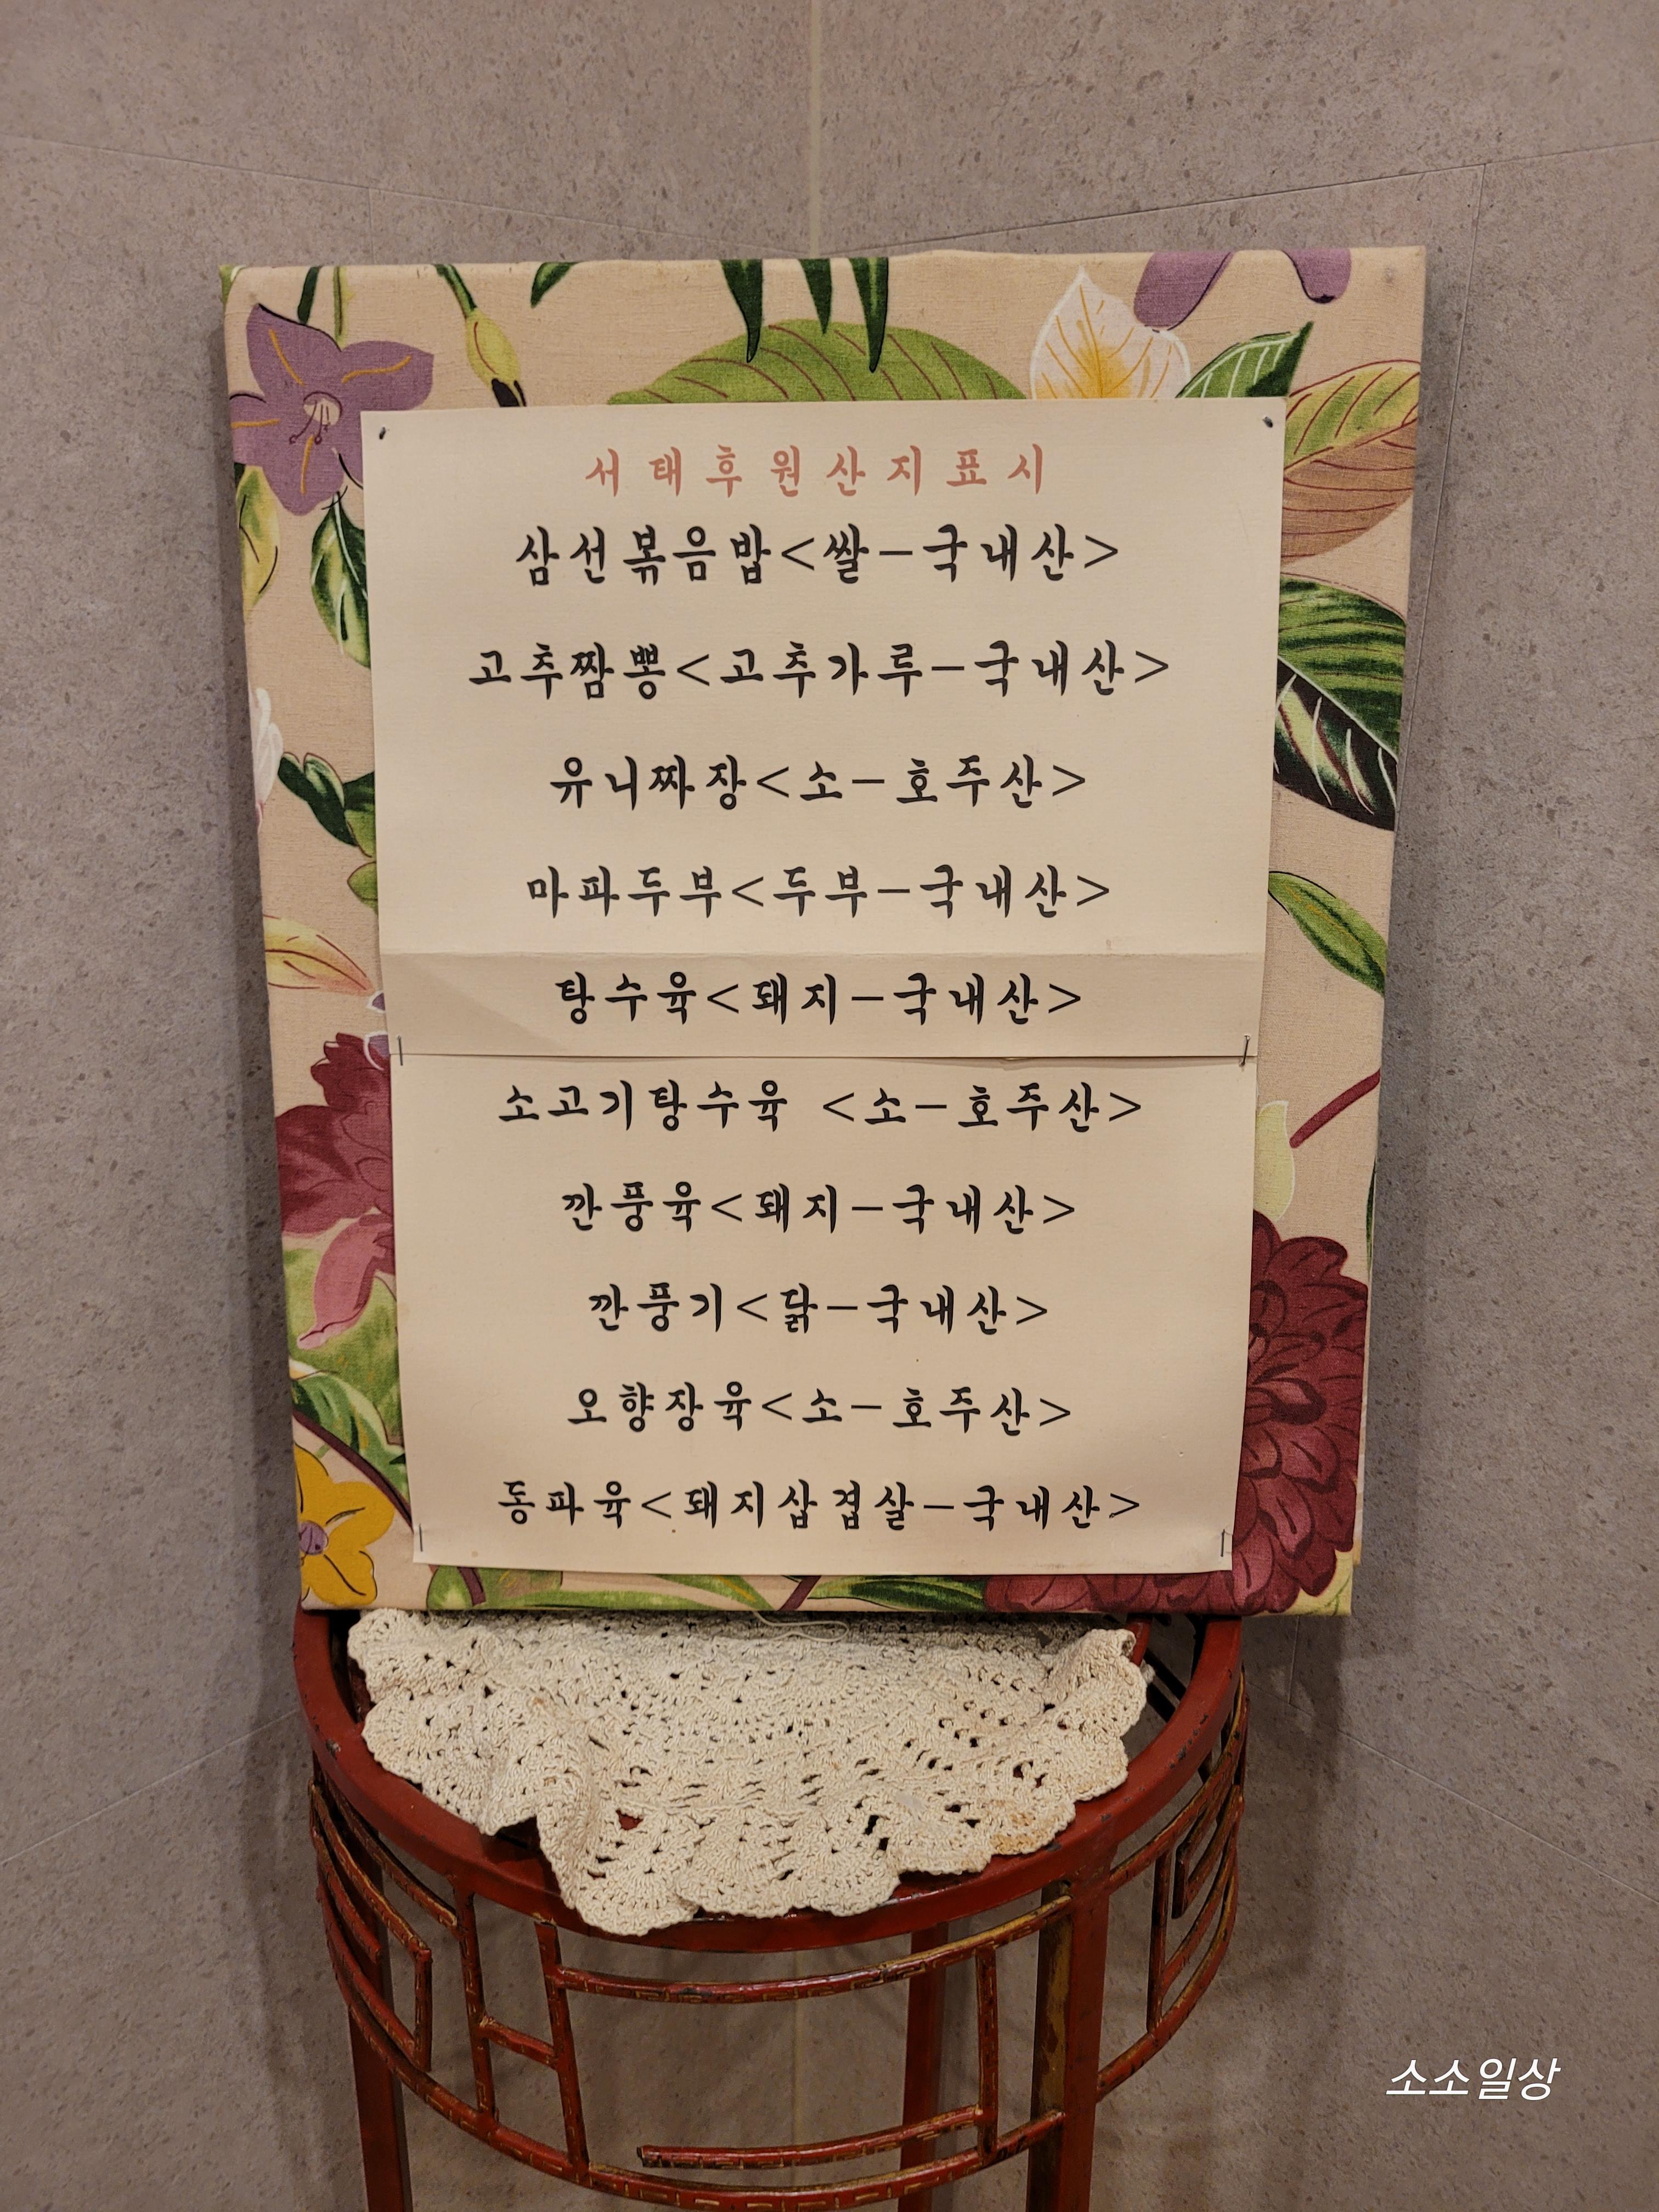 서태후원산지표시
삼선볶음밥<쌀-국내산>
고추짬뽕<고추가루-국내산>
유니짜장<소-호주산>
마파두부<두부-국내산>
탕수육<돼지-국내산>
소고기탕수육 <소-호주산>
깐풍육<돼지-국내산>
깐풍기<닭-국내산>
오향장육<소-호주산>
동파육<돼지삼겹살-국내산>
소소일상